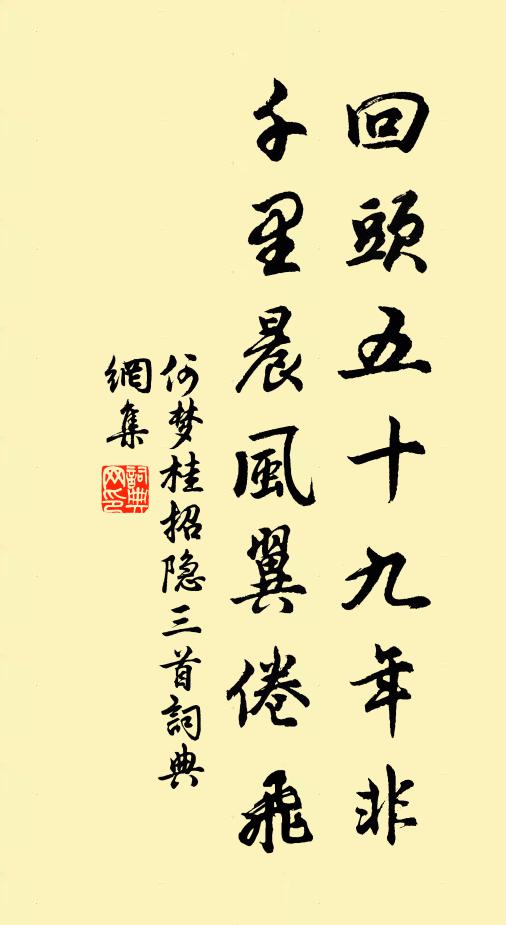 回頭五十九年非
千里晨風翼倦飛
何梦桂招隐三首詞典
網集
詞典
网印